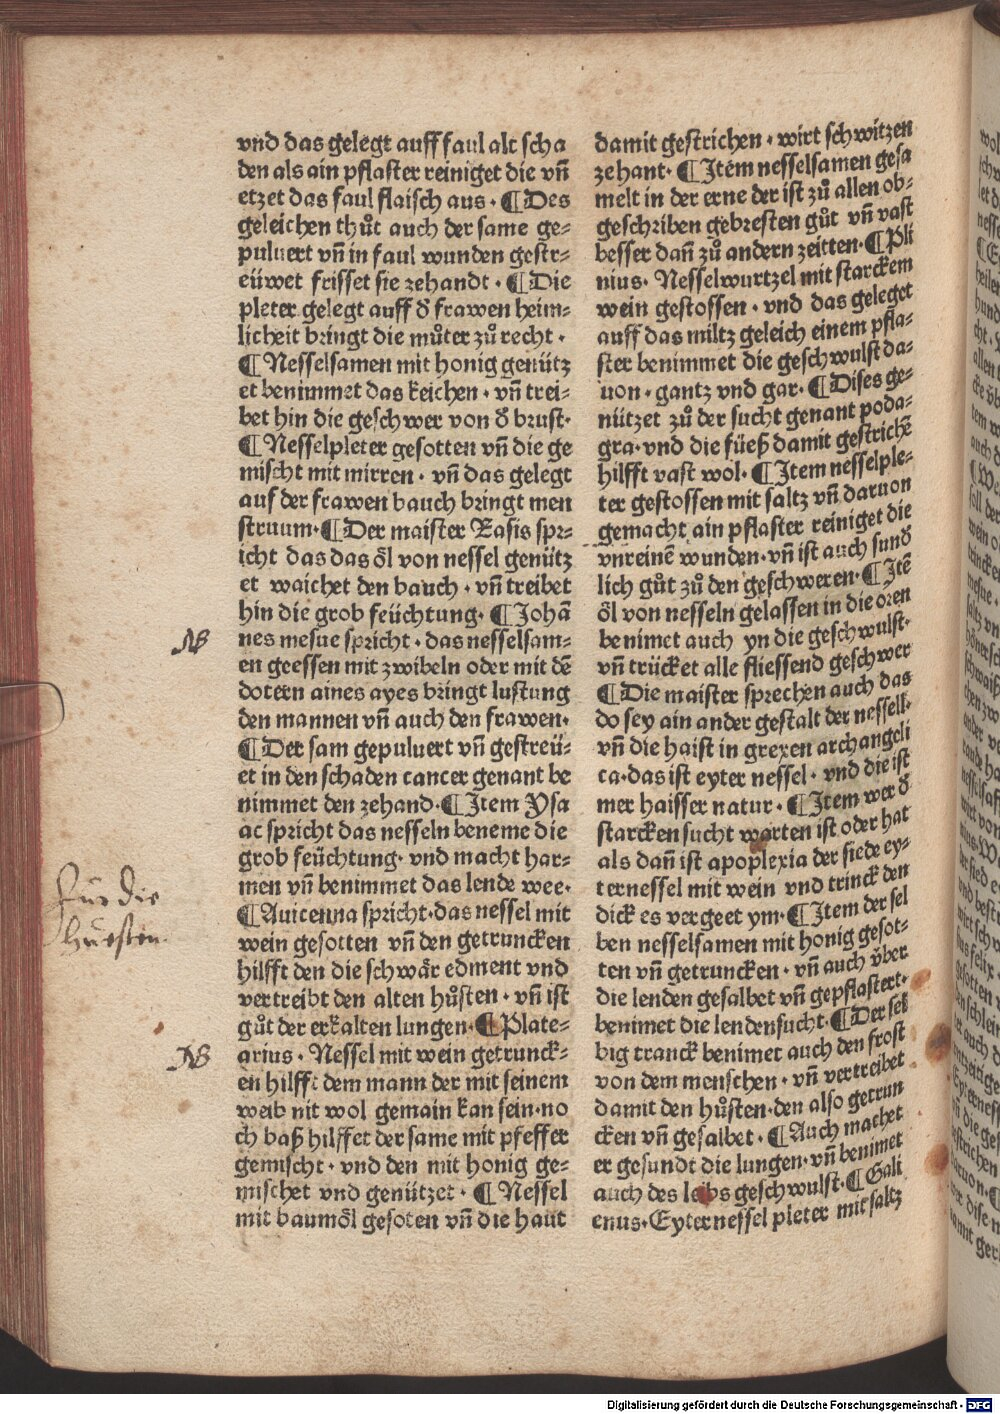 vnd das gelegt auff faul alt scha
den als ain pflaster reiniget die vn̄
etzet das faul flaisch aus · ¶ Des
geleichen thůt auch der same ge⸗
puluert vn̄ in faul wunden gestr⸗
eüwet frisset sie zehandt · ¶ Die
pleter gelegt auff d̕ frawen heim⸗
licheit bringt die můter zů recht ·
¶ Nesselsamen mit honig genütz
et benimmet das keichen · vn̄ trei⸗
bet hin die geschwer von d̕ brust·
¶ Nesselpleter gesotten vn̄ die ge
mischt mit mirren · vn̄ das gelegt
auf der frawen bauch bringt men
struum·¶ Der maister Rasis spr⸗
icht das das öl von nessel genütz
et waichet den bauch · vn̄ treibet
hin die grob feüchtung· ¶ Johā
nes mesue spricht · das nesselsam⸗
en geessen mit zwibeln oder mit dē
dottern aines ayes bringt lustung
den mannen vn̄ auch den frawen·
¶ Der sam gepuluert vn̄ gestreü⸗
et in den schaden cancer genant be
nimmet den zehand·¶ Item Ysa
ac spricht das nesseln beneme die
grob feüchtung· vnd macht har⸗
men vn̄ benimmet das lende wee·
¶ Auicenna spricht·das nessel mit
wein gesotten vn̄ den getruncken
hilfft den die schwär edment vnd
vertreibt den alten hůsten · vn̄ ist
gůt der erkalten lungen·¶ Plate⸗
arius · Nessel mit wein getrunck⸗
en hilfft dem mann der mit seinem
weib nit wol gemain kan sein·no
ch baß hilffet der same mit pfeffer
gemischt · vnd den mit honig ge⸗
mischet vnd genützet · ¶ Nessel
mit baumöl gesoten vn̄ die haut
damit gestrichen · wirt schwitzen
zehant· ¶ Item nesselsamen gesa
melt in der erne der ist zů allen ob⸗
geschriben gebresten gůt vn̄ vast
besser dan̄ zů andern zeitten·¶ Pli
nius· Nesselwurtzel mit starckem
wein gestossen · vnd das geleget
auff das miltz geleich einem pfla⸗
ster benimmet die geschwulst da⸗
uon · gantz vnd gar· ¶ Dises ge⸗
nützet zů der sucht genant poda⸗
gra·vnd die füeß damit gestrichē
hilfft vast wol· ¶ Item nesselple⸗
ter gestossen mit saltz vn̄ daruon
gemacht ain pflaster reiniget die
vnreinē wunden·vn̄ ist auch sund̕
lich gůt zů den geschweren·¶ Itē
öl von nesseln gelassen in die oren
benimet auch yn die geschwulst·
vn̄ trücket alle fliessend geschwer
¶ Die maister sprechen auch das
do sey ain ander gestalt der nessell·
vn̄ die haist in grexen archangeli
ca·das ist eyter nessel · vnd die ist
mer haisser natur · ¶ Item wer d̕
starcken sucht warten ist oder hat
als dan̄ ist apoplexia der siede ey⸗
ternessel mit wein vnd trinck den
dick es vergeet ym·¶ Item der sel
ben nesselsamen mit honig gesot⸗
ten vn̄ getruncken · vn̄ auch v̈ber
die lenden gesalbet vn̄ gepflastert·
benimet die lendensucht·¶ Der sel
big tranck benimet auch den frost
von dem menschen · vn̄ vertreibet
damit den hůsten·den also getrun
cken vn̄ gesalbet · ¶ Auch machet
er gesundt die lungen·vn̄ benimet
auch des leibs geschwulst·¶ Gali
enus·Eyternessel pleter mit saltz
NB
Für die
Huesten.
NB
Digitalisierung gefördert durch die Deutsche Forschungsgemeinschaft - DFG